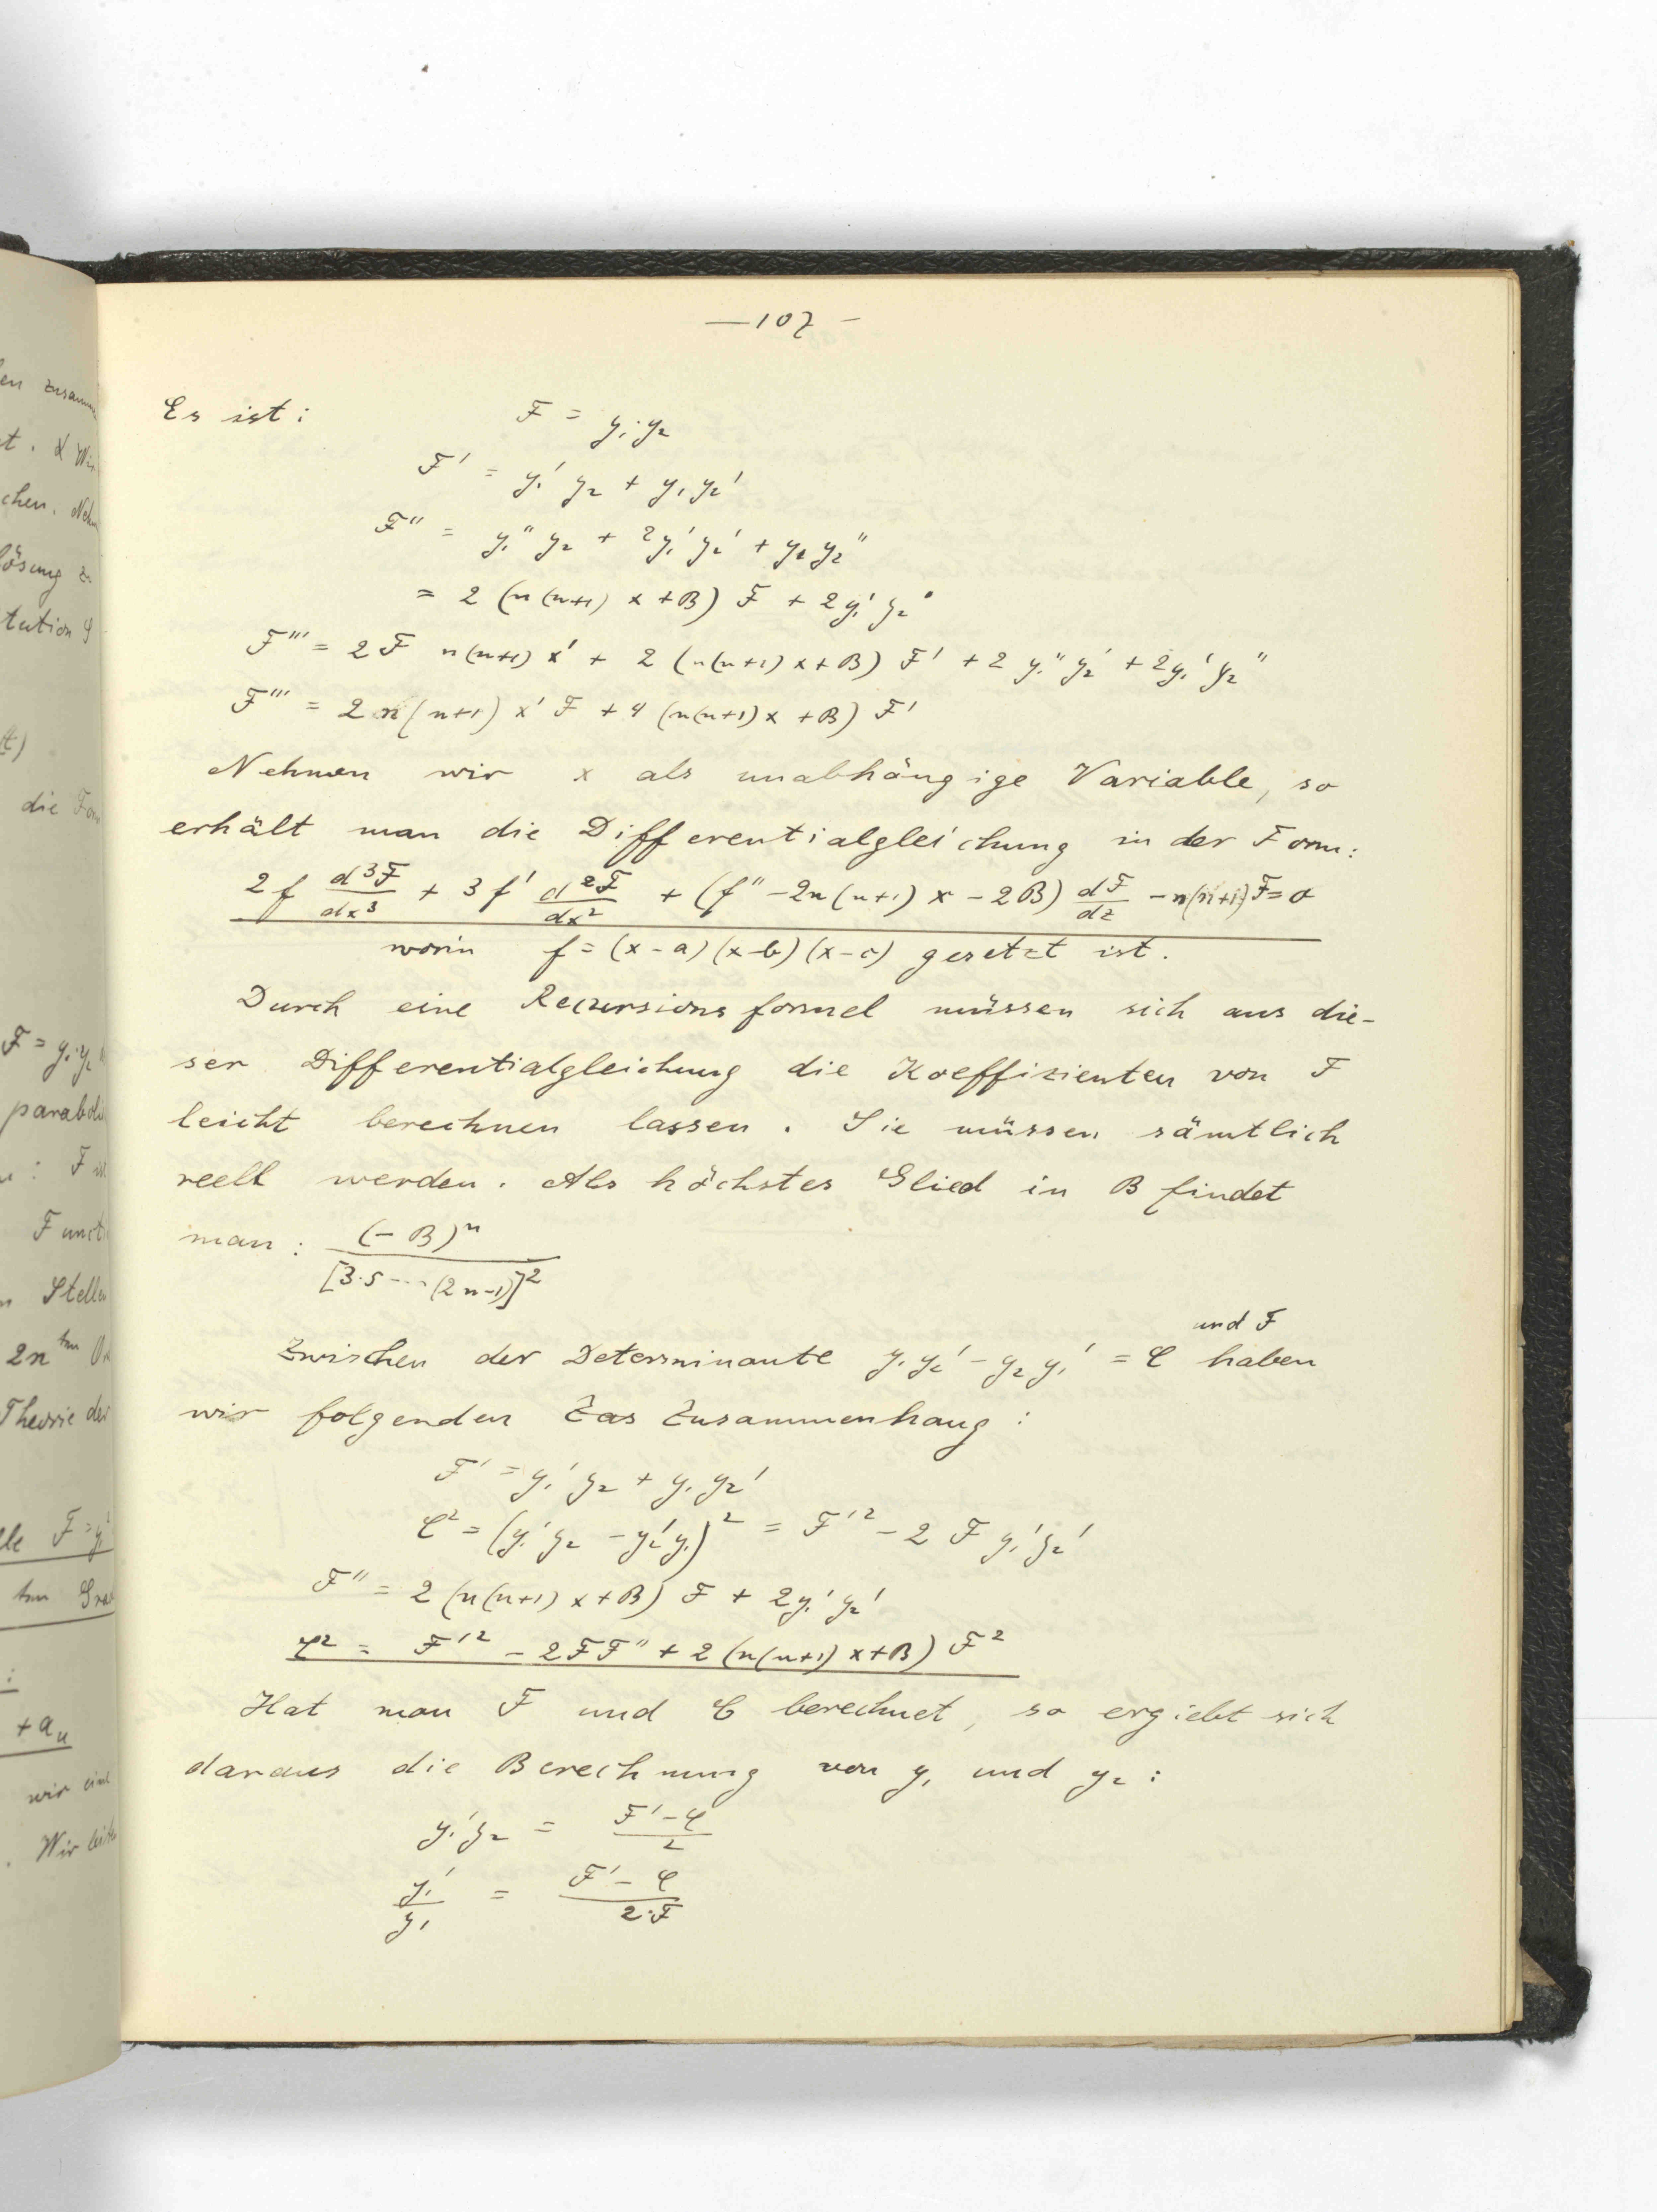 —107—
Es ist: F = y₁·y₂
F' = y₁' y₂ + y₁ y₂'
F'' = y₁'' y₂ + 2y₁' y₂' + y₁ y₂''
= 2 (n(n+1) x + B) F + 2y₁' y₂'
F''' = 2 F n(n+1) x' + 2 (n(n+1) x + B) F' + 2 y₁'' y₂' + 2y₁' y₂''
F''' = 2 n(n+1) x' F + 4 (n(n+1) x + B) F'
Nehmen wir x als unabhängige Variable, so
erhält man die Differentialgleichung in der Form:
2 f d³F/dx³ + 3 f' d²F/dx² + (f'' - 2n(n+1) x - 2B) dF/dz - n(n+1) F = 0
worin f = (x-a)(x-b)(x-c) gesetzt ist.
Durch eine Recursionsformel müssen sich aus die-
ser Differentialgleichung die Koeffizienten von F
leicht berechnen lassen. Sie müssen sämtlich
reell werden. Als höchstes Glied in B findet
man: (-B)ⁿ / [3·5···(2n-1)]²
und F
Zwischen der Determinante y₁ y₂' - y₂ y₁' = C haben
wir folgenden Zas Zusammenhang:
F' = y₁' y₂ + y₁ y₂'
C² = (y₁' y₂ - y₂' y₁)² = F'² - 2 F y₁' y₂'
F'' = 2 (n(n+1) x + B) F + 2y₁' y₂'
C² = F'² - 2FF'' + 2 (n(n+1) x + B) F²
Hat man F und C berechnet, so ergiebt sich
daraus die Berechnung von y₁ und y₂:
y₁' y₂ = (F' - C)/2
y₁'/y₁ = (F' - C)/(2·F)